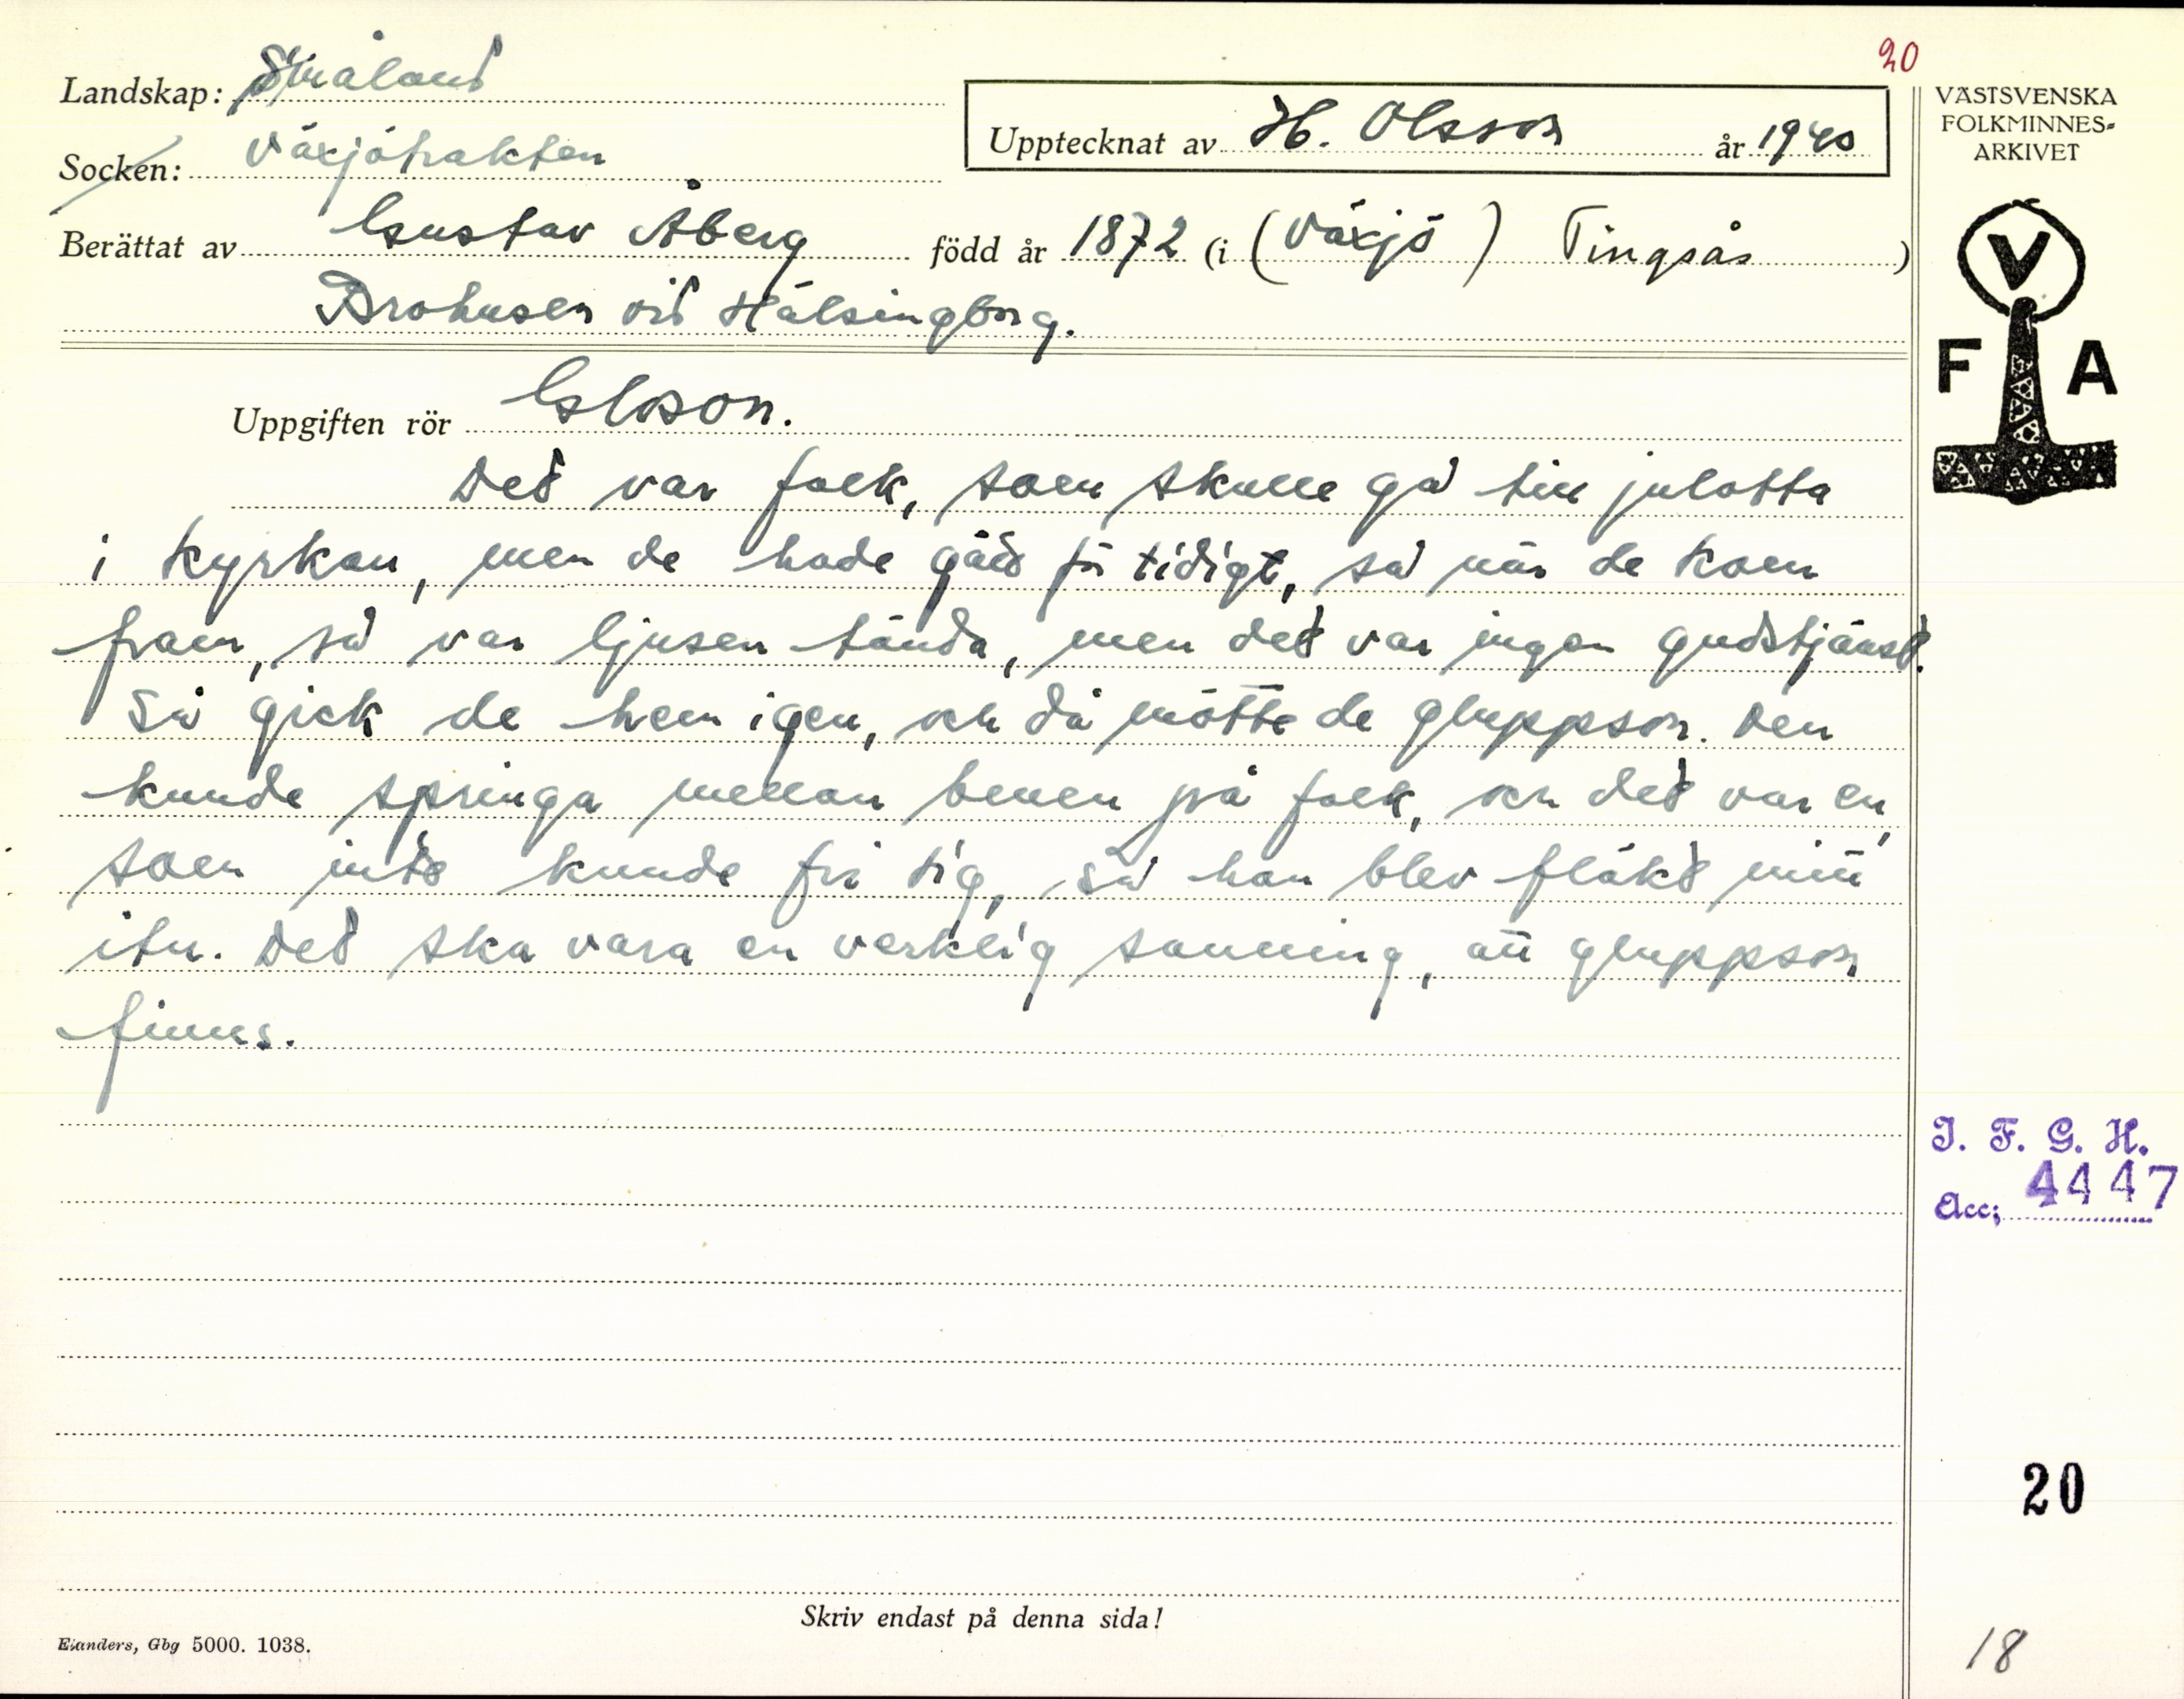 20
Landskap: Småland
Socken: Växjötrakten
Upptecknat av H. Olsson år 1940
VÄSTSVENSKA
FOLKMINNES-
ARKIVET
Berättat av Gustav Åberg född år 1872 (i (Växjö) Tingsås)
Brohusen vid Hälsingborg.
V
F A
Uppgiften rör Gloson.
Det var folk, som skulle gå till julotta
i kyrkan, men de hade gått för tidigt, så när de kom
fram, så var ljusen tända, men det var ingen gudstjänst.
Så gick de hem igen, och då mötte de gluppson. Den
kunde springa mellan benen på folk, och det var en,
som inte kunde fri sig, så han blev fläkt mitt
itu. Det ska vara en verklig sanning, att gluppson
finns.
I. F. G. H.
Acc; 4447
20
Skriv endast på denna sida!
Elanders, Gbg 5000. 1038.
18